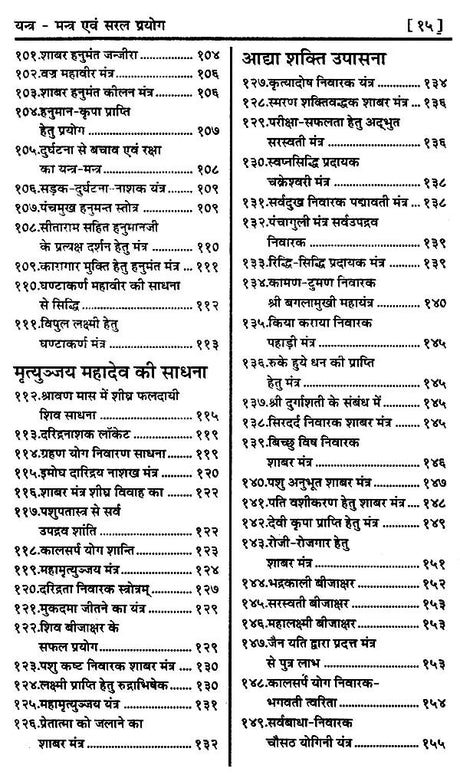 यन्त्र - मन्त्र एवं सरल प्रयोग
[ १५ ]
१०१.शाबर हनुमंत जन्जीरा .............. १०४
१०२.वज्र महावीर मंत्र .................... १०६
१०३.शाबर हनुमंत कीलन मंत्र .......... १०६
१०४.हनुमान-कृपा प्राप्ति
हेतु प्रयोग ............................ १०७
१०५.दुर्घटना से बचाव एवं रक्षा
का यन्त्र-मन्त्र ........................ १०८
१०६.सड़क-दुर्घटना-नाशक यंत्र ....... १०९
१०७.पंचमुख हनुमन्त स्तोत्र ............. १०९
१०८.सीताराम सहित हनुमानजी
के प्रत्यक्ष दर्शन हेतु मंत्र .......... ११०
१०९.कारागार मुक्ति हेतु हनुमंत मंत्र ... १११
११०.घण्टाकर्ण महावीर की साधना
से सिद्धि .............................. ११२
१११.विपुल लक्ष्मी हेतु
घण्टाकर्ण मंत्र ....................... ११३
मृत्युञ्जय महादेव की साधना
११२.श्रावण मास में शीघ्र फलदायी
शिव साधना ......................... ११५
११३.दरिद्रनाशक लॉकेट ................ ११९
११४.ग्रहण योग निवारण साधना ....... ११९
११५.इमोघ दारिद्रय नाशख मंत्र ........ १२०
११६.शाबर मंत्र शीघ्र विवाह का ....... १२२
११७.पशुपतास्त्र से सर्व
उपद्रव शांति ......................... १२२
११८.कालसर्प योग शान्ति .............. १२३
११९.महामृत्युञ्जय मंत्र .................. १२४
१२०.दरिद्रता निवारक स्त्रोतम् .......... १२७
१२१.मुकदमा जीतने का यंत्र ........... १२९
१२२.शिव बीजाक्षर के
सफल प्रयोग ......................... १२९
१२३.पशु कष्ट निवारक शाबर मंत्र ..... १३०
१२४.लक्ष्मी प्राप्ति हेतु रुद्राभिषेक ..... १३०
१२५.महामृत्युञ्जय यंत्र .................. १३१
१२६.प्रेतात्मा को जलाने का
शाबर मंत्र ............................ १३२
आद्या शक्ति उपासना
१२७.कृत्यादोष निवारक यंत्र ........... १३४
१२८.स्मरण शक्तिवद्धक शाबर मंत्र ... १३६
१२९.परीक्षा-सफलता हेतु अद्‌भुत
सरस्वती मंत्र ........................ १३६
१३०.स्वप्नसिद्धि प्रदायक
चक्रेश्वरी मंत्र ........................ १३८
१३१.सर्वदुख निवारक पद्मावती मंत्र .. १३८
१३२.पंचागुली मंत्र सर्वउपद्रव
निवारक .............................. १३९
१३३.रिद्धि-सिद्धि प्रदायक मंत्र ......... १३९
१३४.कामण-टुमण निवारक
श्री बगलामुखी महायंत्र ........... १४०
१३५.किया कराया निवारक
पहाड़ी मंत्र ........................... १४५
१३६.रुके हुये धन की प्राप्ति
हेतु मंत्र ............................... १४५
१३७.श्री दुर्गाशती के संबंध में .......... १४५
१३८.सिरदर्द निवारक शाबर मंत्र ....... १४५
१३९.बिच्छु विष निवारक
शाबर मंत्र ............................ १४६
१४०.पशु अनुभूत शाबर मंत्र ........... १४७
१४१.पति वशीकरण हेतु शाबर मंत्र ... १४८
१४२.देवी कृपा प्राप्ति हेतु मंत्र ......... १४९
१४३.रोजी-रोजगार हेतु
शाबर मंत्र ............................ १५१
१४४.भद्रकाली बीजाक्षर ................ १५२
१४५.सरस्वती बीजाक्षर ................. १५३
१४६.महालक्ष्मी बीजाक्षर ............... १५३
१४७.जैन यति द्वारा प्रदत्त मंत्र
से पुत्र लाभ ......................... १५३
१४८.कालसर्प योग निवारक-
भगवती त्वरिता ..................... १५४
१४९.सर्वबाधा-निवारक
चौसठ योगिनी यंत्र ................ १५५